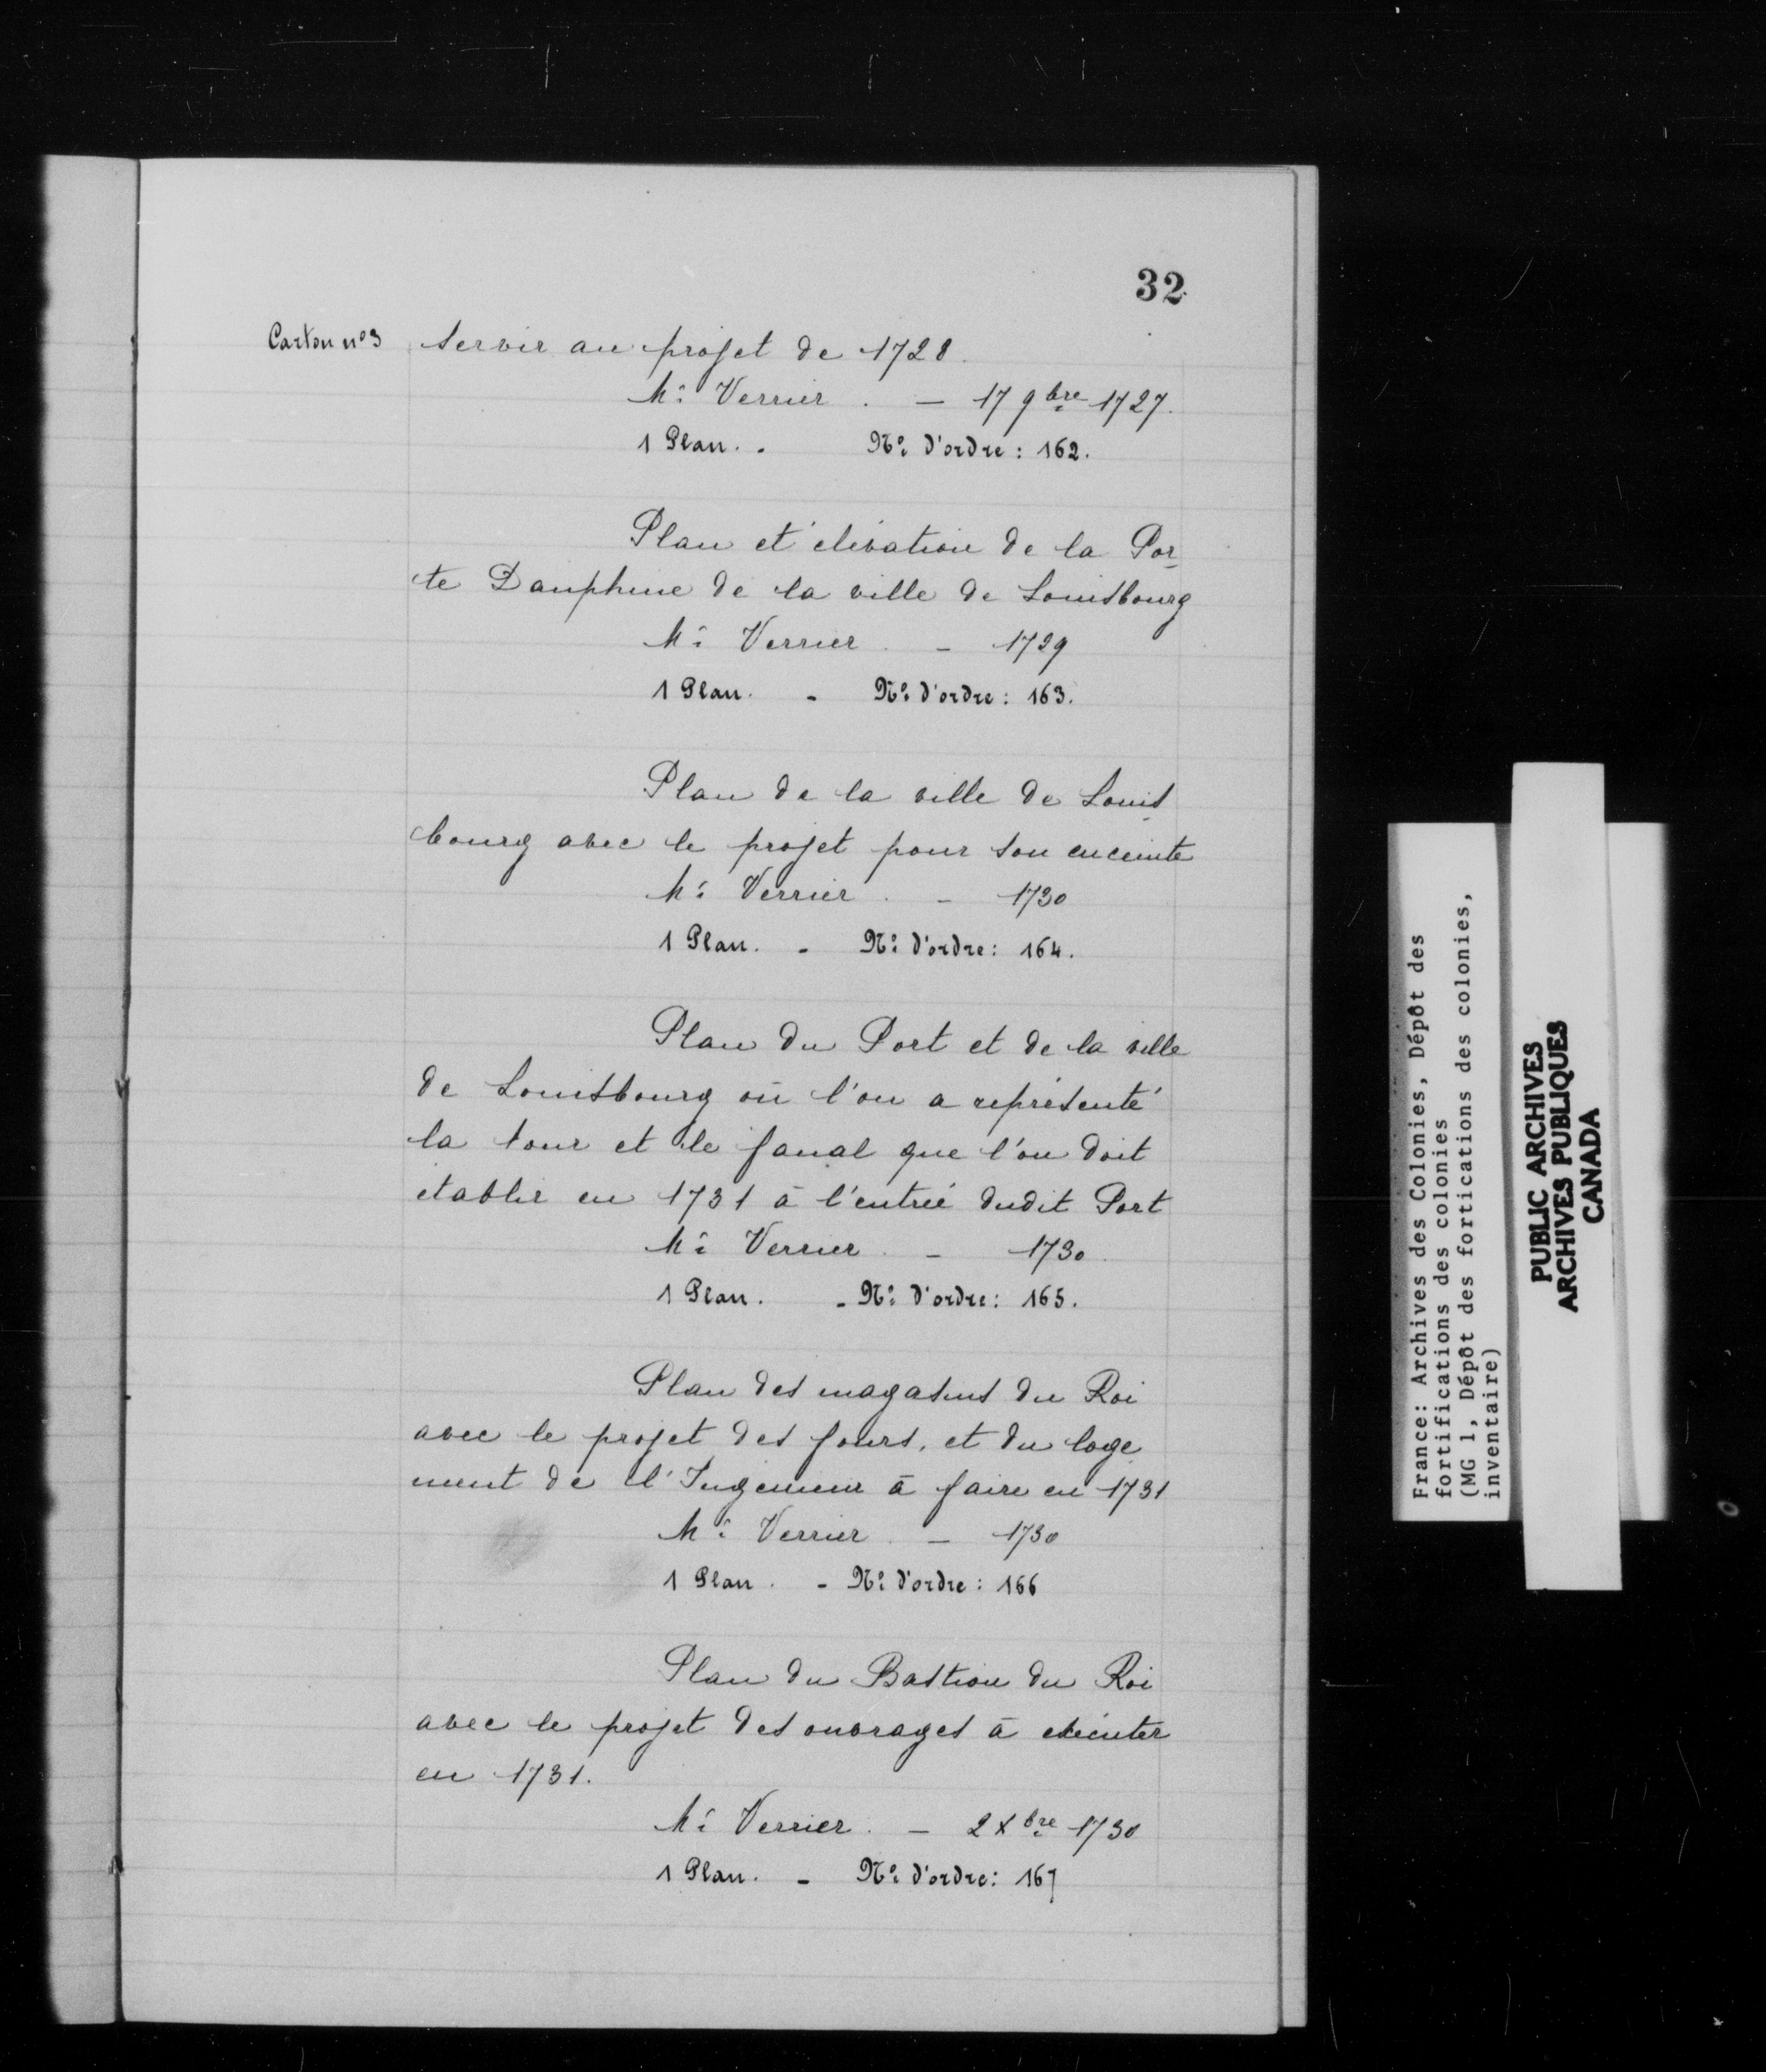 32
Carton nº 3 servir au projet de 1728.
Mr Verrier . — 17 9bre 1727.
1 Plan. - Nº d'ordre : 162.
Plan et élévation de la Por-
te Dauphine de la ville de Louisbourg
Mr Verrier . — 1729
1 Plan. - Nº d'ordre : 163.
Plan de la ville de Louis-
bourg avec le projet pour son enceinte
Mr Verrier . — 1730
1 Plan. - Nº d'ordre : 164.
Plan du Port et de la ville
de Louisbourg où l'on a représenté
la tour et le fanal que l'on doit
établir en 1731 à l'entrée dudit Port
Mr Verrier . — 1730.
1 Plan. - Nº d'ordre : 165.
Plan des magasins du Roi
avec le projet des fours, et du loge-
ment de l'Ingénieur à faire en 1731
Mr Verrier . — 1730
1 Plan. - Nº d'ordre : 166
Plan du Bastion du Roi
avec le projet des ouvrages à exécuter
en 1731.
Mr Verrier . — 2 Xbre 1730
1 Plan. - Nº d'ordre : 167
France: Archives des Colonies, Dépôt des
fortifications des colonies
(MG 1, Dépôt des fortications des colonies,
inventaire)
PUBLIC ARCHIVES
ARCHIVES PUBLIQUES
CANADA